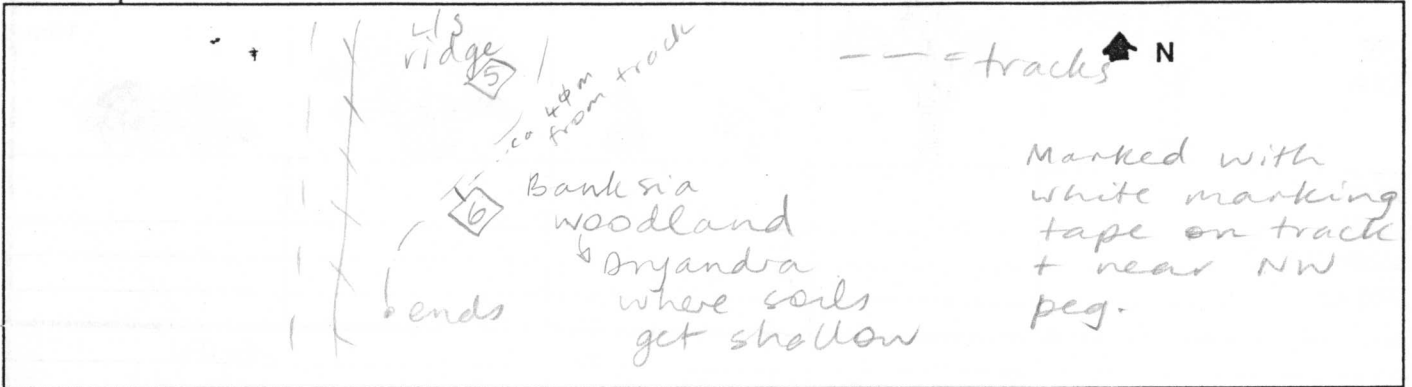 L/S
ridge
5
ca 40m
from track
6
Banksia
woodland
Dryandra
where soils
get shallow
ends
— — = tracks
N
Marked with
white marking
tape on track
+ near NW
peg.